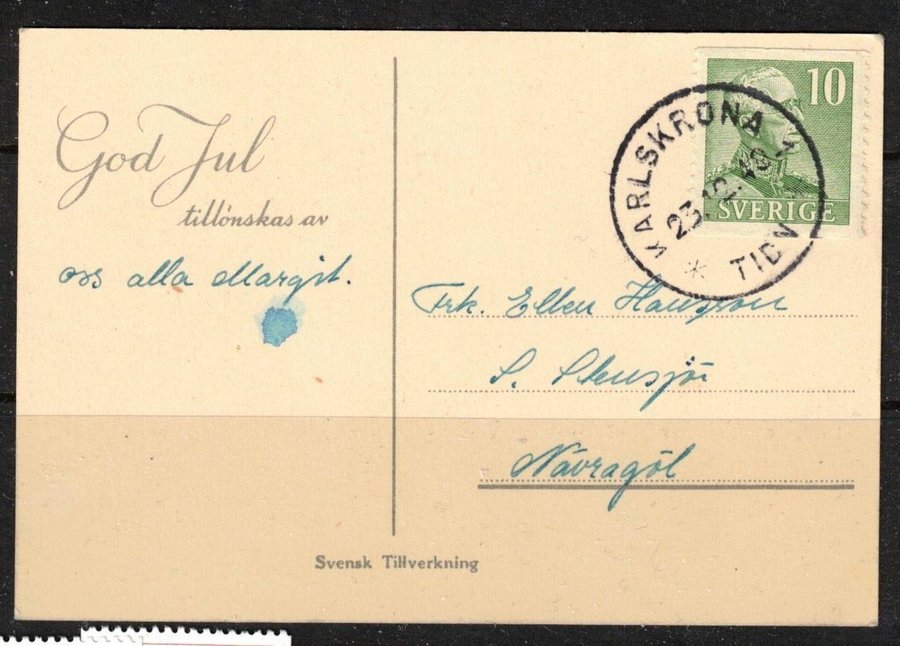 God Jul
tillönskas av
oss alla Margit.
10
SVERIGE
KARLSKRONA
23.12.48
TIDN
Frk. Ellen Hansson
S. Stensjö
Nävragöl
Svensk Tillverkning